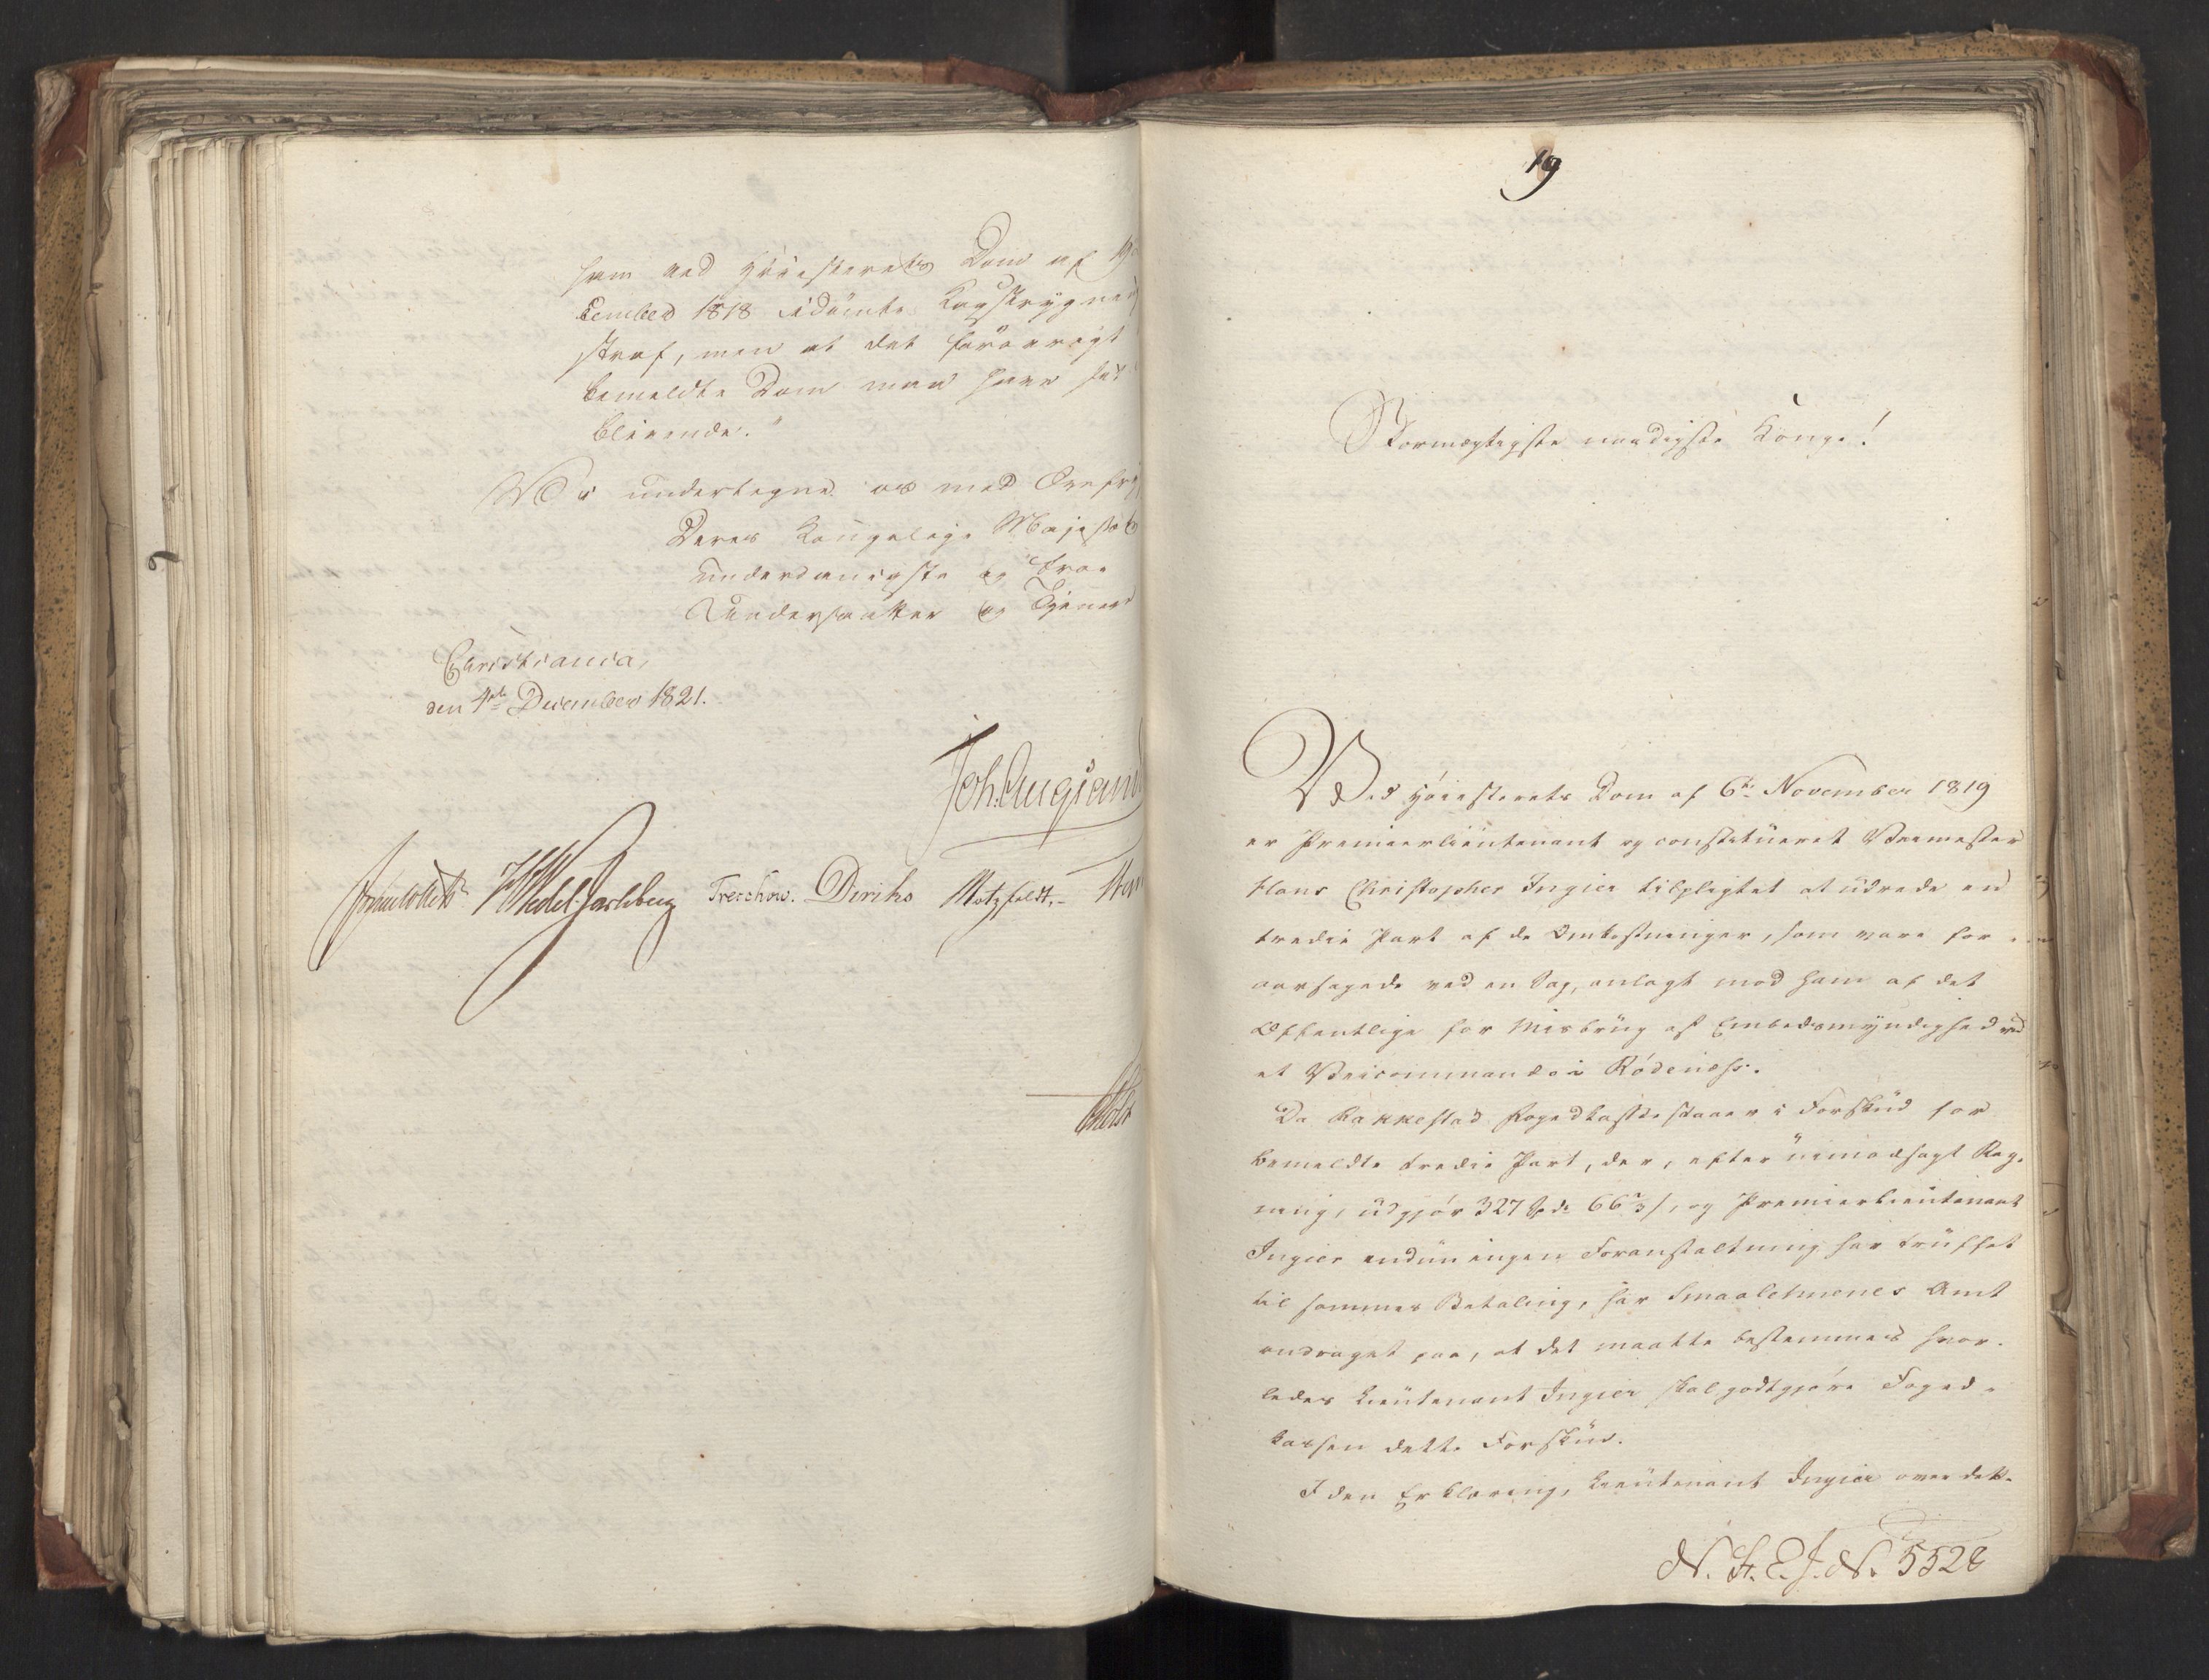 ham ved Höiesterets Dom af 19
cember 1818 idömte Kagstrygnings
straf, men at det forövrigt
bemeldte Dom maa have sit
blivende."
Vi undertegne os med Ærefrygt
Deres Kongelige Majestæts
underdanigste og troe
Undersaatter og Tjenere
Christiania,
den 4de December 1821.
Joh. Aug. Sand
Sommerhielm HWedel Jarlsberg Treschow. Diriks Motzfeldt.
Holst
19
Stormægtigste naadigste Konge!
Ved Höiesterets Dom af 6te November 1819
er Premierlieutenant og constitueret Veimester
Hans Christopher Ingier tilpligtet at udrede en
tredie Part af de Omkostninger, som vare for-
aarsagede ved en Sag, anlagt mod ham af det
Offentlige for Misbrug af Embedsmyndighed ved
et Veicommando i Rödenæss.
Da Rakkestad Fogedkasse staaer i Forskud for
bemeldte tredie Part, der, efter uimodsagt Reg-
ning, udgjör 327 Spd. 66 2/3 s, og Premierlieutenant
Ingier endnu ingen Foranstaltning har truffet
til sammes Betaling, har Smaalehnenes Amt
andraget paa, at det maatte bestemmes hvor-
ledes Lieutenant Ingier skal godtgjöre Foged-
kassen dette Forskud.
I den Erklæring, Lieutenant Ingier over dette
N. St. E. J. N. 5528